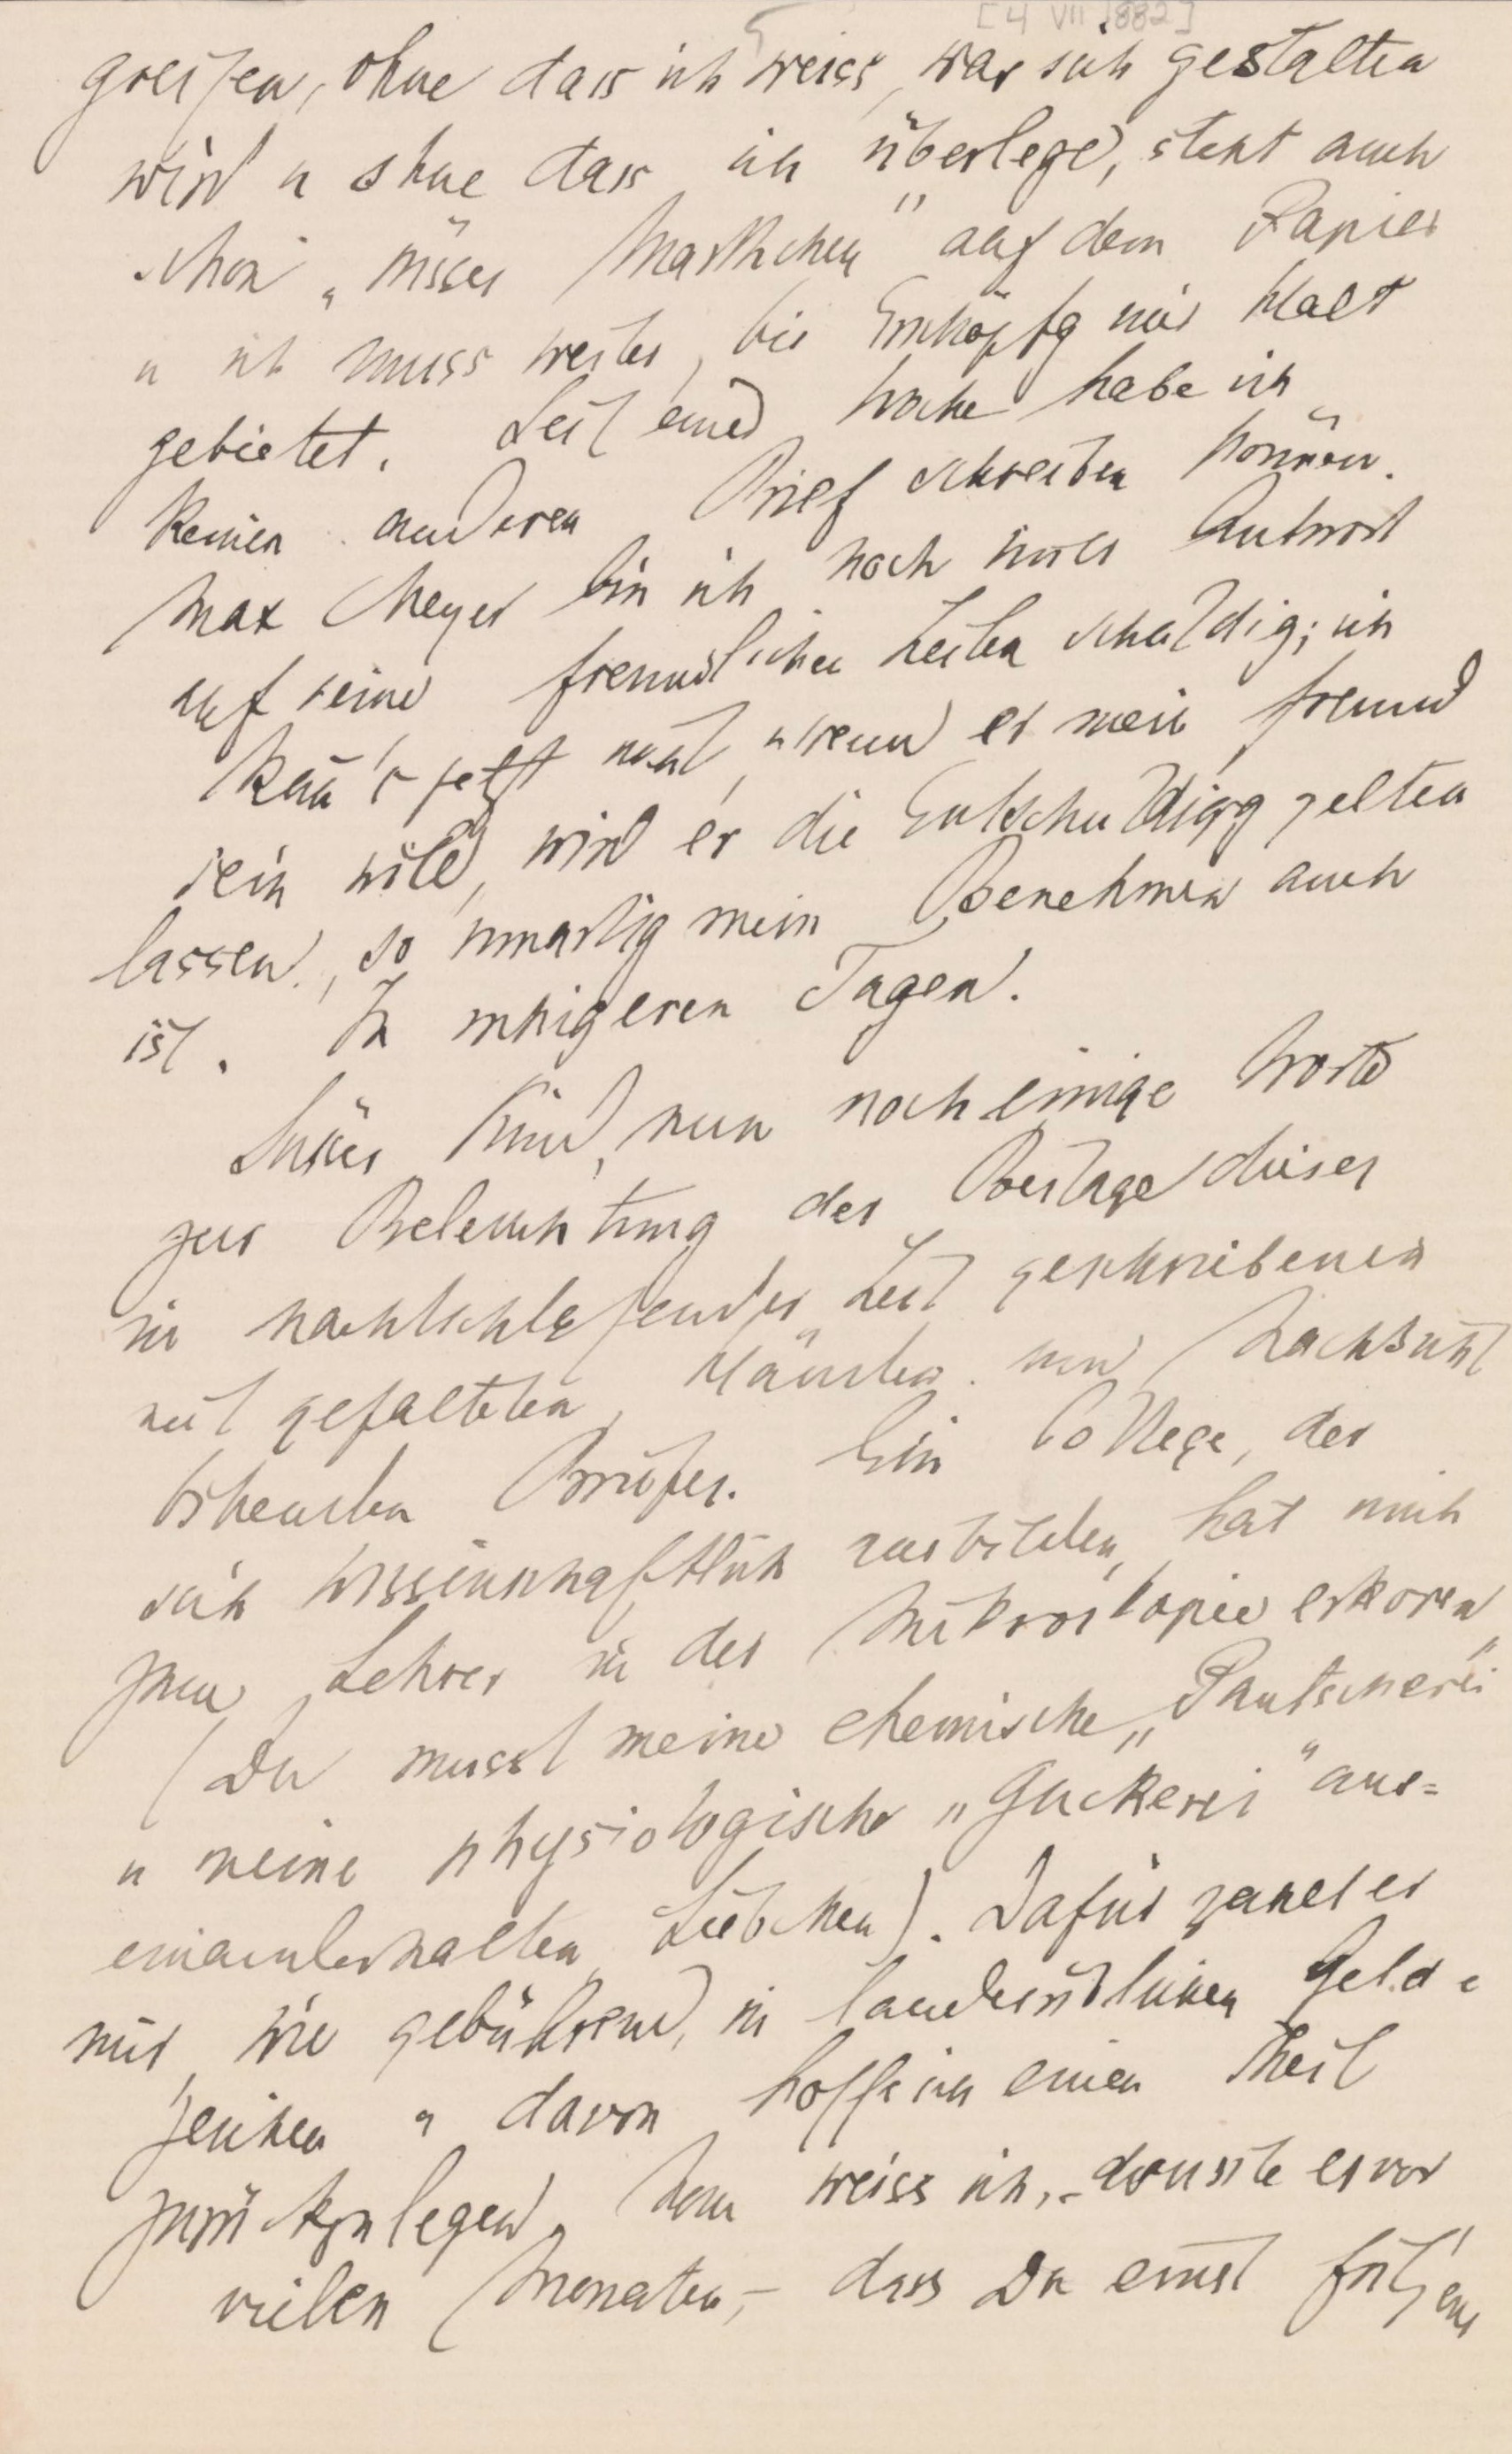 [4 VII 1882]
greifen, ohne dass ich weiss, was sich gestalten
wird u ohne dass ich überlege, steht auch
schon „süsses Marthchen“ auf dem Papier
u ich muss weiter, bis Erschöpfg mir Halt
gebietet. Seit einer Woche habe ich
keinen anderen Brief schreiben können.
Max Meyer bin ich noch immer Antwort
auf seine freundlichen Zeilen schuldig; ich
kann's jetzt nicht, wenn er mein Freund
sein will, wird er die Entschuldigg gelten
lassen, so unartig mein Benehmen auch
ist. In ruhigeren Tagen.
Süsses Kind, nun noch einige Worte
zur Beleuchtung der Beilage dieser
in nachtschlafender Zeit geschriebenen
mit gefalteten Händen um Nachsicht
bittenden Briefes. Ein College, der
sich wissenschaftlich ausbilden, hat mich
zum Lehrer in der Mikroskopie erkoren
(Du musst meine chemische „Pantscherei“
u meine physiologische „Guckerei“ aus=
einanderhalten, Liebchen). Dafür zahlt er
mir, wie gebührend, in landesüblichen Geld=
zeichen u davon hoffe ich einen Theil
zurückzulegen. weiss ich, – wusste es vor
vielen Monaten, – dass Du einst